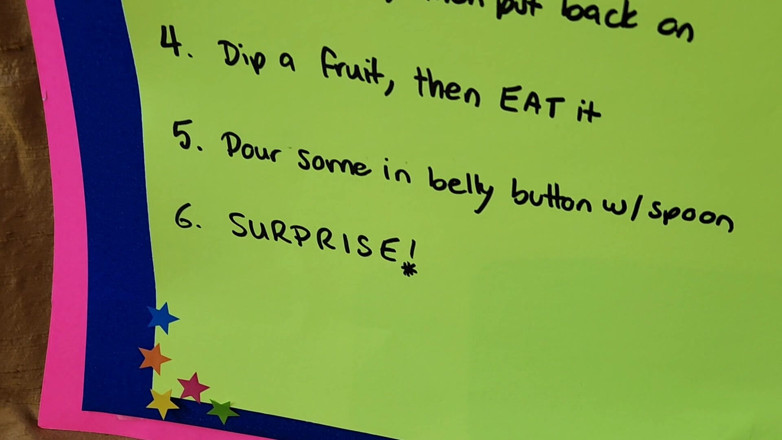 put back on
4. Dip a fruit, then EAT it
5. Pour some in belly button w/spoon
6. SURPRISE!